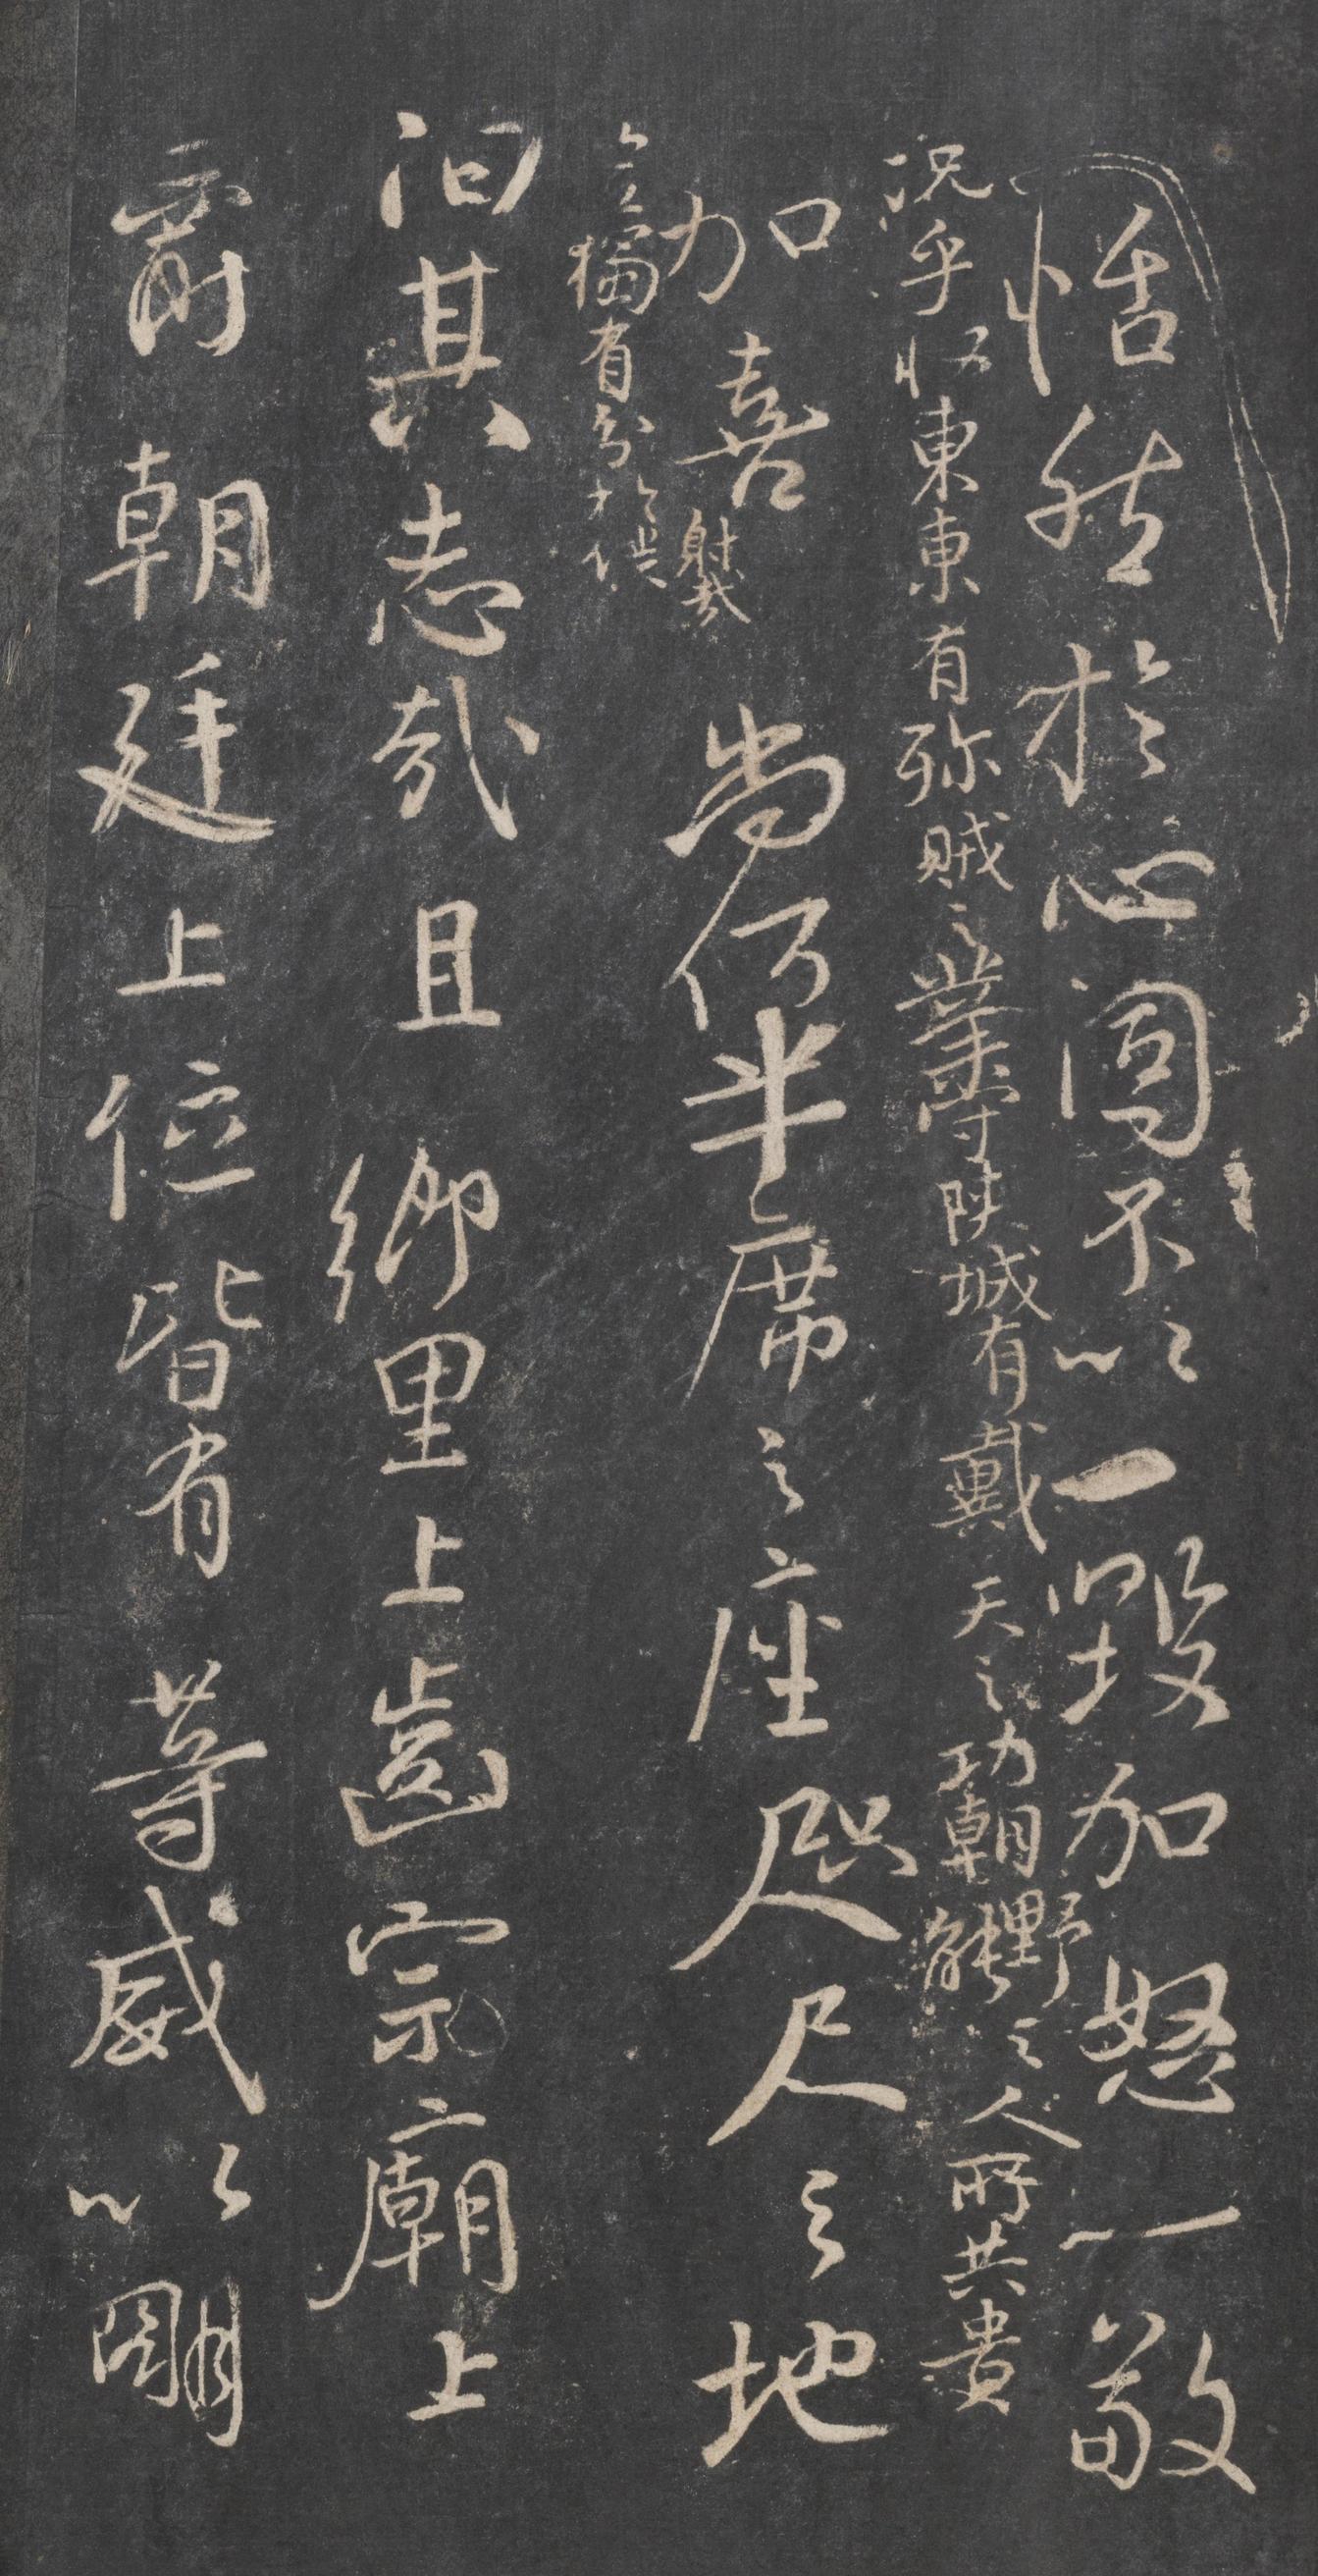 恬然於心固不以一毀加怒一敬
况乎收東京有殄賊之業守陝城有戴天之功朝野之人所共貴
加喜尚何半席之座咫尺之地能
豈獨有分於僕射哉
汩其志哉且鄉里上齒宗廟上
爵朝廷上位皆有等威以明